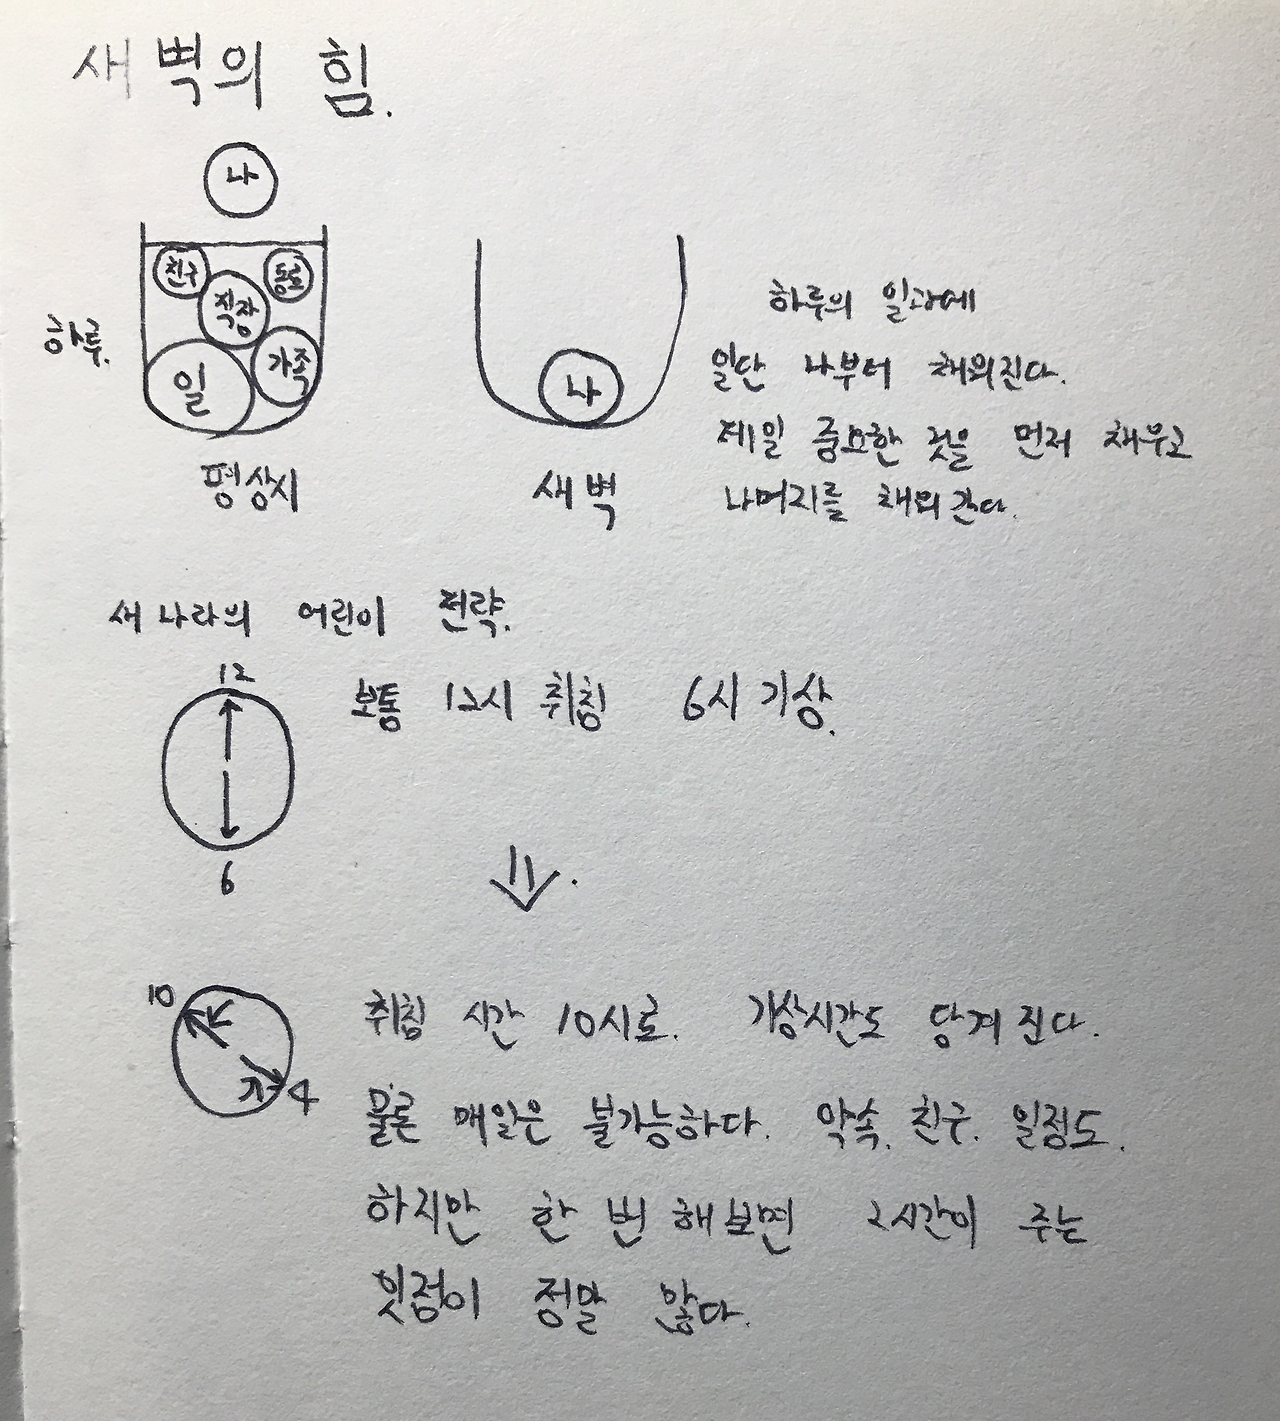 새벽의 힘.
나
친구 동료
직장
하루.
일 가족
나
평상시
새벽
하루의 일과에
일단 나부터 채워진다.
제일 중요한 것을 먼저 채우고
나머지를 채워간다.
새나라의 어린이 전략.
12
보통 12시 취침 6시 기상.
6
10
취침 시간 10시로. 기상시간도 당겨진다.
4
물론 매일은 불가능하다. 약속. 친구. 일정도.
하지만 한 번 해보면 2시간이 주는
잇점이 정말 많다.